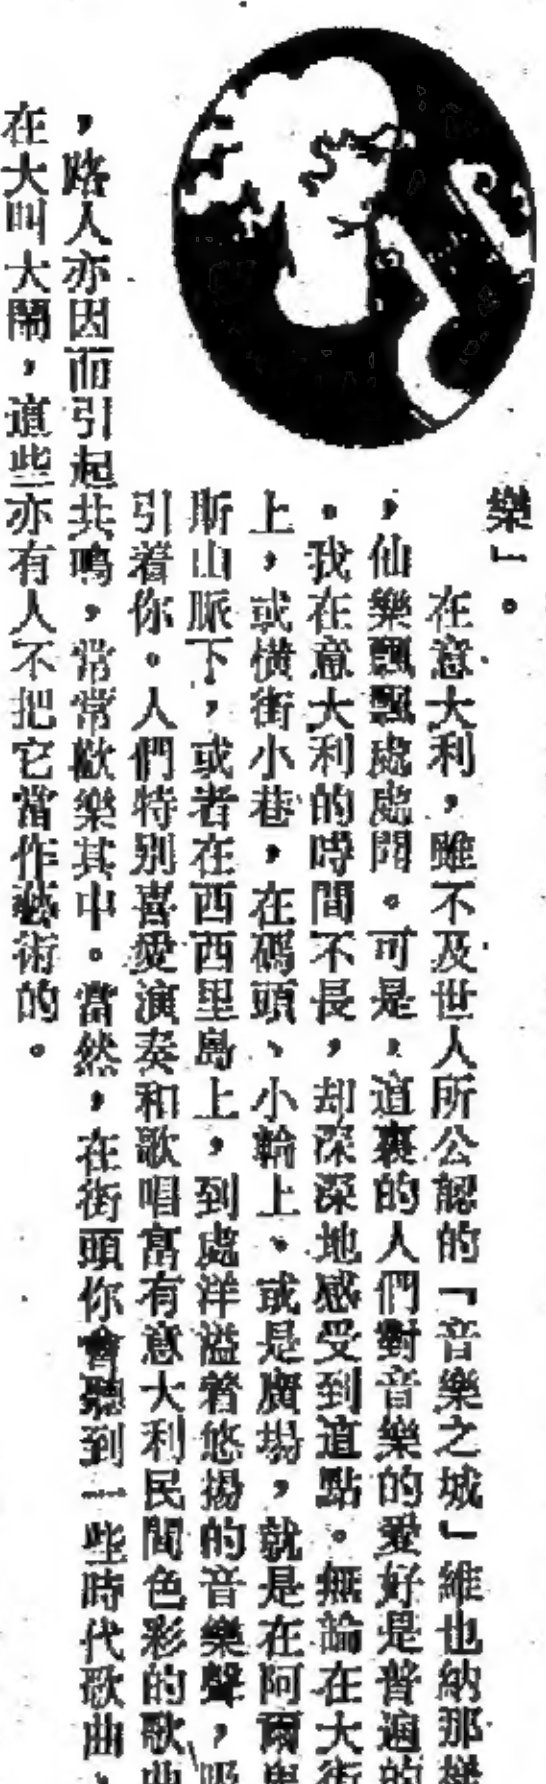 樂」。
在意大利，雖不及世人所公認的「音樂之城」維也納那樣
，仙樂飄飄處處聞。可是，這裏的人們對音樂的愛好是普遍的
。我在意大利的時間不長，却深深地感受到這點。無論在大街
上，或橫街小巷，在碼頭、小輪上、或是廣場，就是在阿爾卑
斯山脈下，或者在西西里島上，到處洋溢着悠揚的音樂聲，吸
引着你。人們特別喜愛演奏和歌唱富有意大利民間色彩的歌曲
，路人亦因而引起共鳴，常常歡樂其中。當然，在街頭你會聽到一些時代歌曲，
在大叫大鬧，這些亦有人不把它當作藝術的。